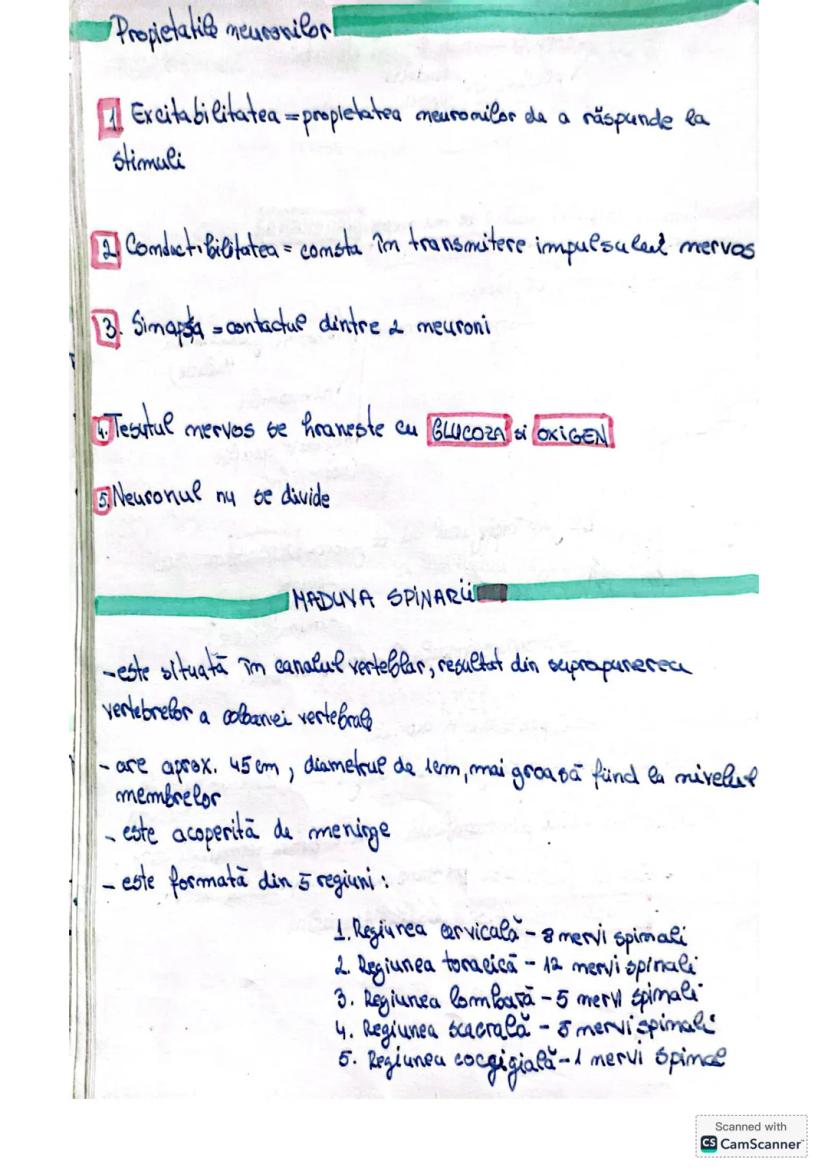 Propietatile neuronilor
1. Excitabilitatea = propietatea neuronilor de a răspunde la
stimuli
2. Conductibilitatea = consta în transmitere impulsului nervos
3. Sinapsa = contactul dintre 2 neuroni
4. Tesutul nervos se hraneste cu GLUCOZA si OXIGEN
5. Neuronul nu se divide
MADUVA SPINARII
- este situată în canalul verteblar, resultat din suprapunerea
vertebrelor a coloanei vertebrale
- are aprox. 45 cm, diametrul de 1cm, mai groasă fiind la nivelul
membrelor
- este acoperită de meninge
- este formată din 5 regiuni:
1. Regiunea cervicală - 8 nervi spinali
2. Regiunea toracică - 12 nervi spinali
3. Regiunea lombară - 5 nervi spinali
4. Regiunea sacrală - 5 nervi spinali
5. Regiunea cocgigială - 1 nervi spinal
Scanned with
CS CamScanner